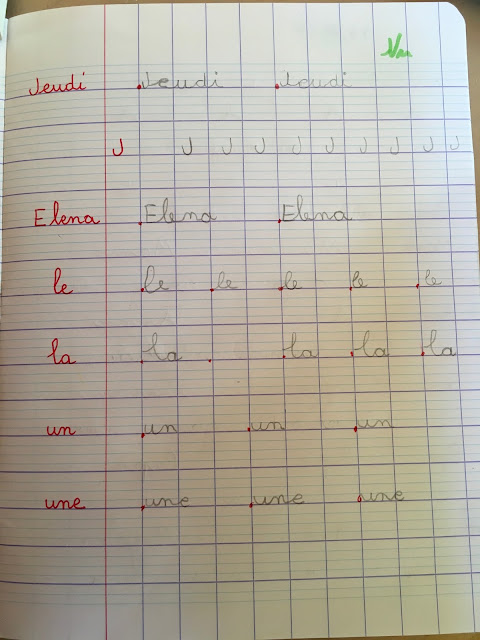 Jeudi Jeudi Jeudi
J J J J J J J J J J
Elena Elena Elena
le le le le le le
la la la la la
un un un un
une une une une